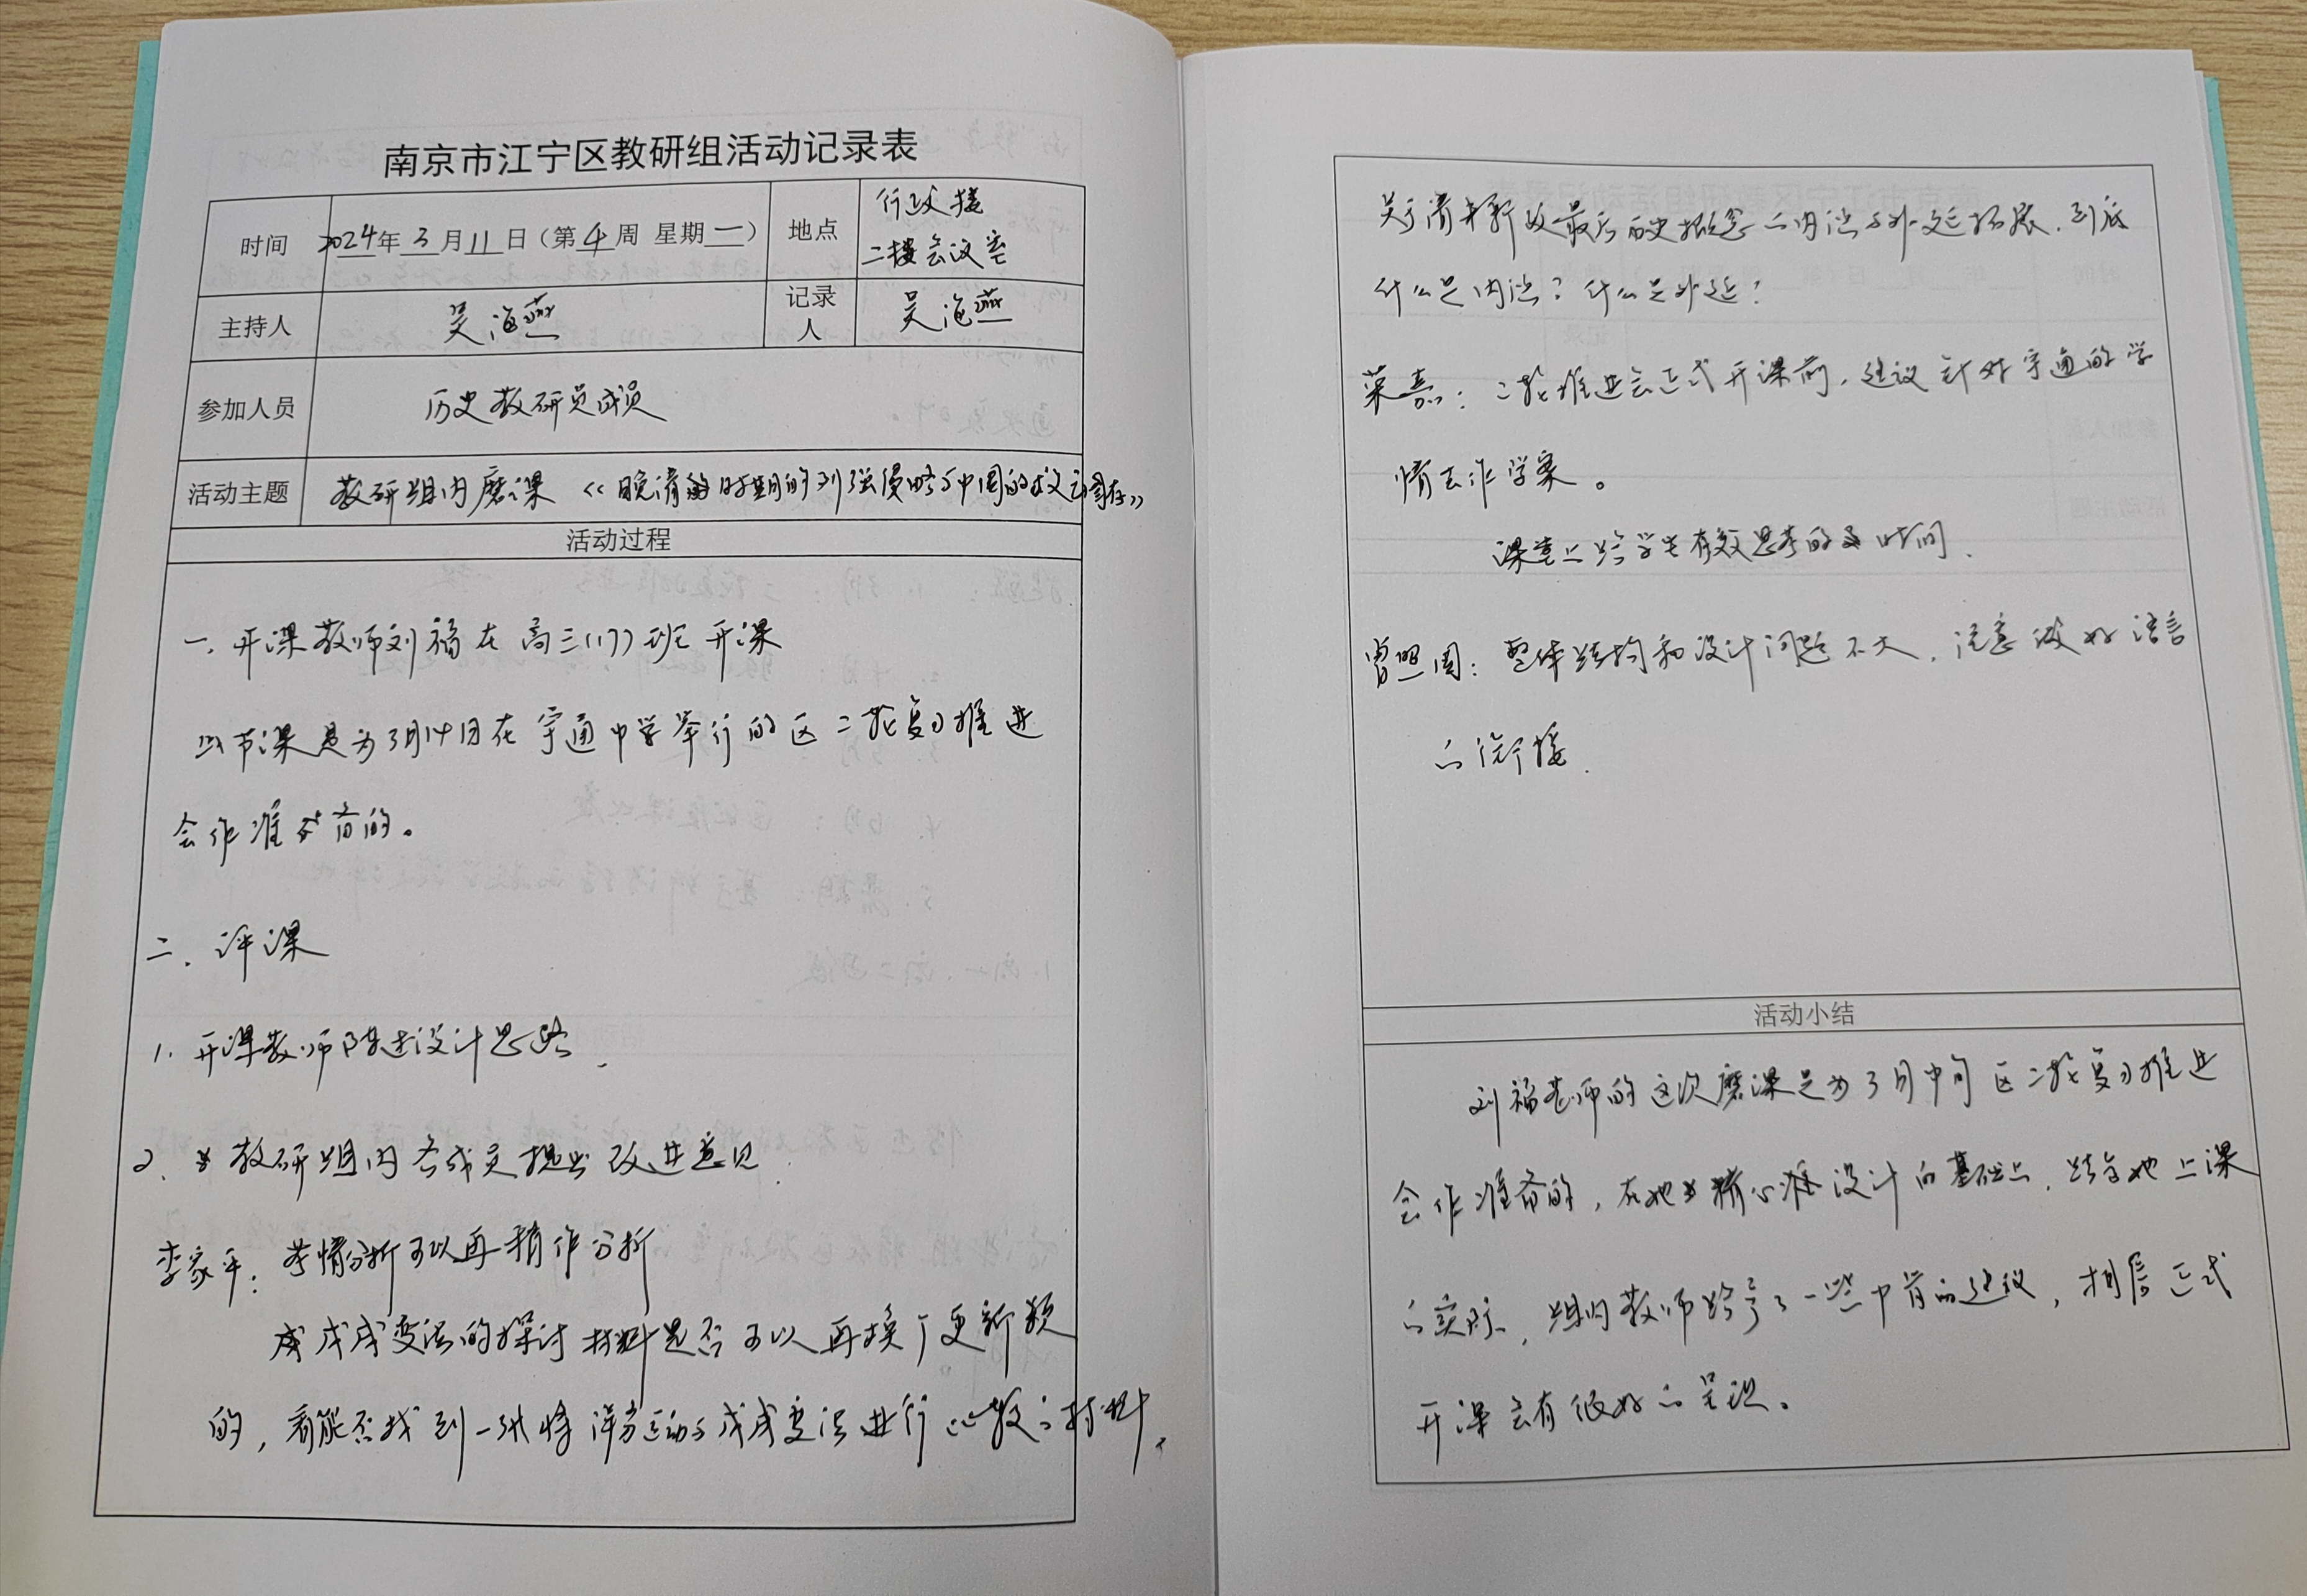 南京市江宁区教研组活动记录表
时间 2024年3月11日（第4周 星期一） 地点 行政楼
二楼会议室
主持人 吴海燕 记录人 吴海燕
参加人员 历史教研员成员
活动主题 教研组内磨课《晚清时期的列强侵略与中国的救亡图存》
活动过程
一、开课教师刘福在高三(17)班开课
此节课是为3月14日在宇通中学举行的区二轮复习推进
会作准备的。
二、评课
1. 开课教师陈述设计思路.
2. 教研组内各成员提出改进意见.
李家平：考情分析可以再精作分析
戊戌变法的探讨材料是否可以再换个更新颖
的，看能否找到一张将洋务运动与戊戌变法进行比较的材料.
关于清末新政最后历史概念的内涵与外延拓展.到底
什么是内涵？什么是外延？
：二轮推进会正式开课前，建议针对宇通的学
情去作学案。
课堂上给学生有效思考的时间.
曾照国：整体结构和设计问题不大，注意做好语言
的衔接.
活动小结
刘福老师的这次磨课是为3月中旬区二轮复习推进
会作准备的，在她精心准设计的基础上，结合她上课
的实际，组内教师给予了一些中肯的建议，相信正式
开课会有很好的呈现。